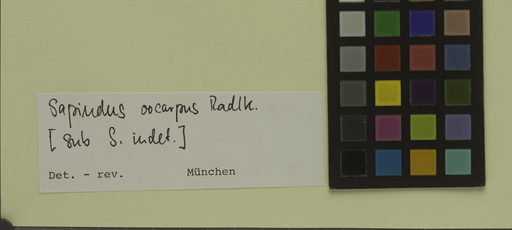 Sapindus oocarpus Radlk.
[sub S. indet.]
Det. - rev. München